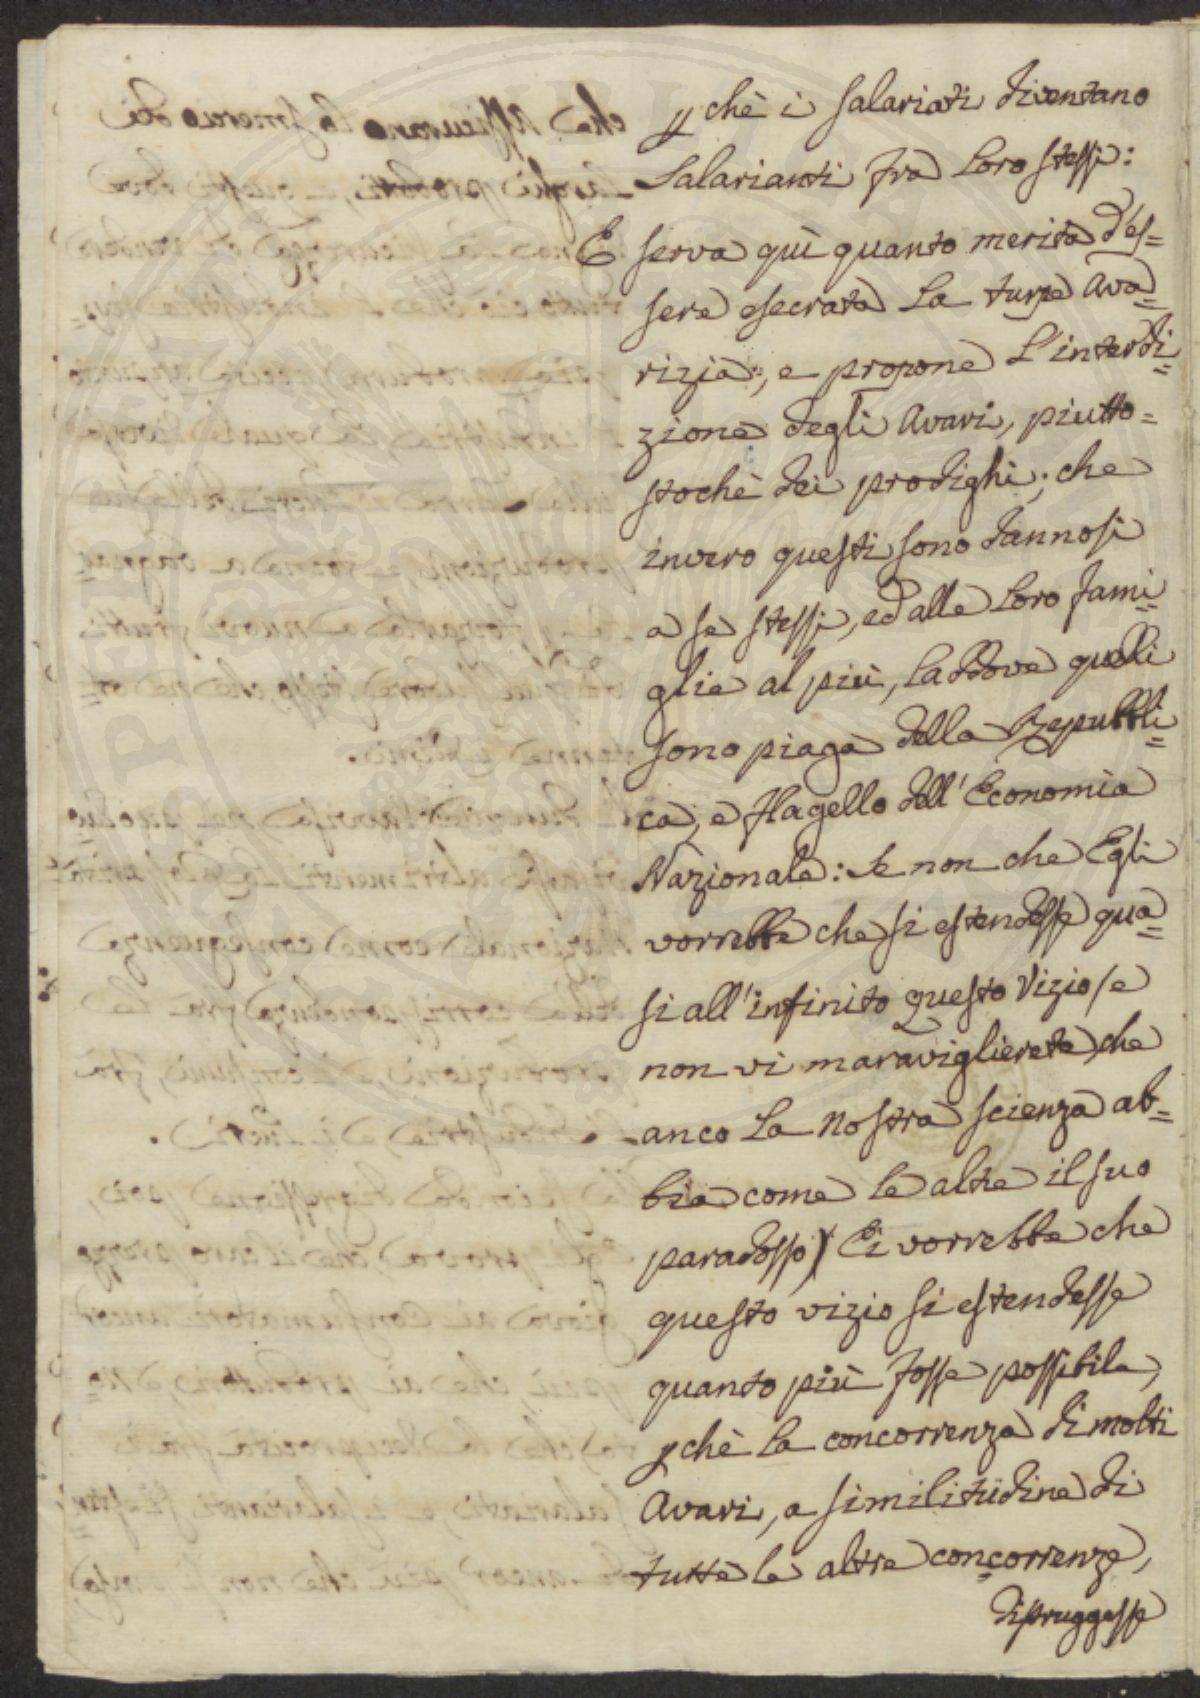 p chè i salariati diventano
Salarianti fra Loro stessi:
E serva quì quanto merita d'es=
sere esecrata La turpe Ava=
rizia:, e propone L'interdi=
zione degli Avari, piutto=
stochè dei prodighi; che
invero questi sono dannosi
a se stessi, ed alle Loro fami=
glie al più, Laddove quelli
sono piaga della Repubbli=
ca, e flagello dell'Economia
Nazionale: Se non che Egli
vorrebbe che si estendesse qua=
si all'infinito questo Vizio (e
non vi maraviglierete, che
anco La Nostra scienza ab=
bia come le altre il suo
paradosso) Ei vorrebbe che
questo vizio si estendesse
quanto più fosse possibile,
p chè La concorrenza di molti
Avari, a similitudine di
tutte le altre concorrenze,
distruggesse